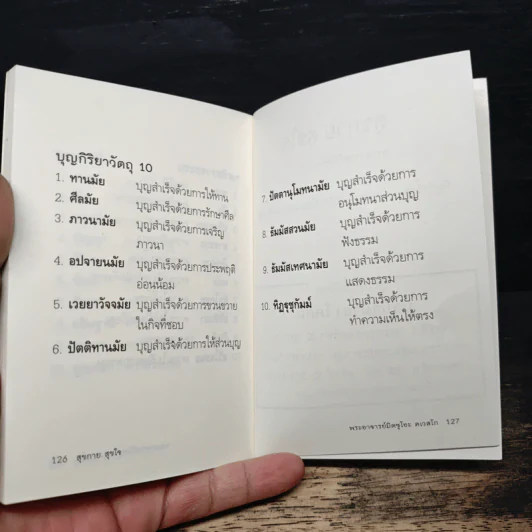 บุญกิริยาวัตถุ 10
1. ทานมัย บุญสำเร็จด้วยการให้ทาน
2. ศีลมัย บุญสำเร็จด้วยการรักษาศีล
3. ภาวนามัย บุญสำเร็จด้วยการเจริญ
ภาวนา
4. อปจายนมัย บุญสำเร็จด้วยการประพฤติ
อ่อนน้อม
5. เวยยาวัจจมัย บุญสำเร็จด้วยการขวนขวาย
ในกิจที่ชอบ
6. ปัตติทานมัย บุญสำเร็จด้วยการให้ส่วนบุญ
126 สุขกาย สุขใจ
7. ปัตตานุโมทนามัย บุญสำเร็จด้วยการ
อนุโมทนาส่วนบุญ
8. ธัมมัสสวนมัย บุญสำเร็จด้วยการ
ฟังธรรม
9. ธัมมัสเทศนามัย บุญสำเร็จด้วยการ
แสดงธรรม
10. ทิฏฐุชุกัมม์ บุญสำเร็จด้วยการ
ทำความเห็นให้ตรง
พระอาจารย์มิตซูโอะ คเวสโก 127